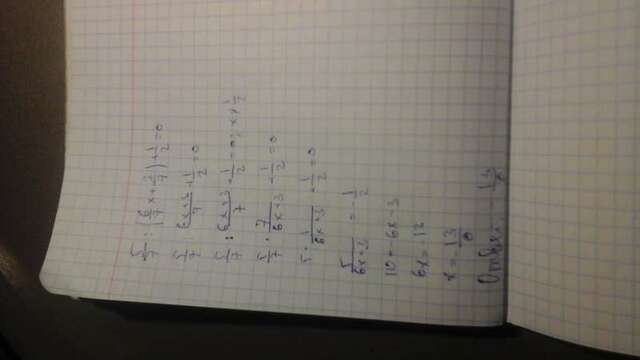 5/7 : (6/7 x + 3/7) + 1/2 = 0
5/7 : (6x+3)/7 + 1/2 = 0
5/7 : (6x+3)/7 + 1/2 = 0; x ≠ 1/2
5/7 · 7/(6x+3) + 1/2 = 0
5 · 1/(6x+3) + 1/2 = 0
5/(6x+3) = - 1/2
10 = -6x - 3
6x = -13
x = - 13/6
Ответ: - 13/6